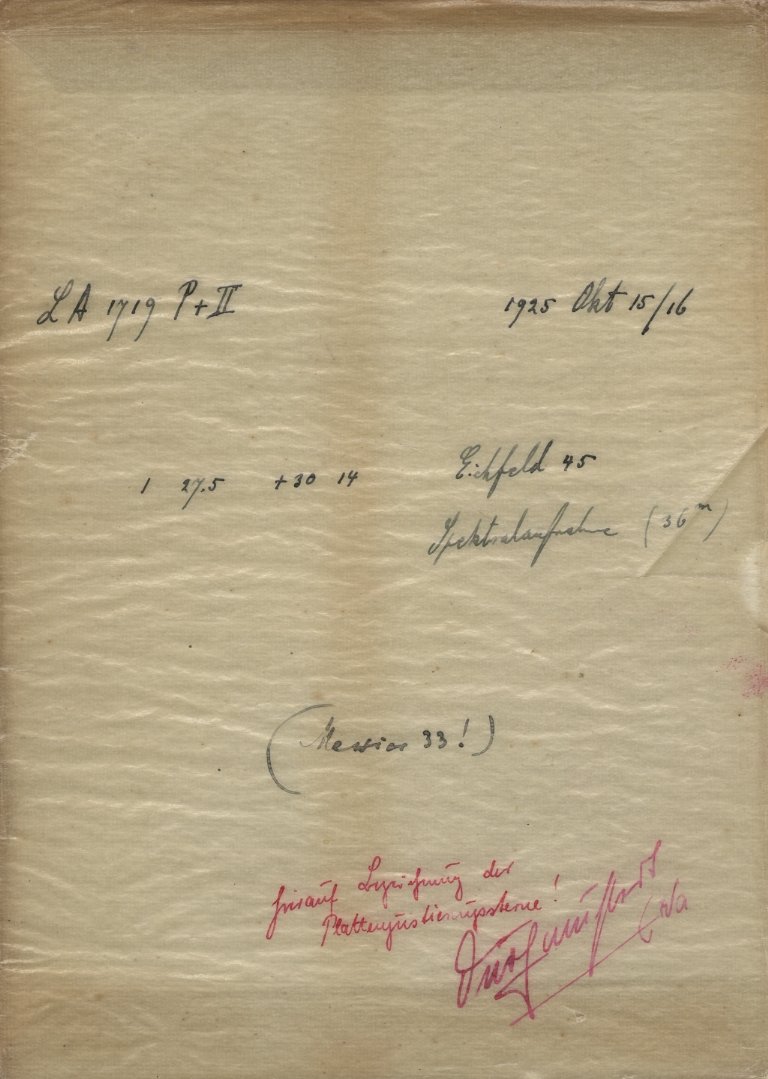 LA 1719 P+II 1925 Okt 15/16
1 27.5 +30 14 Eichfeld 45
Spektralaufnahme (36ᵐ)
(Messier 33!)
hierauf Bezeichnung der
Plattenjustierungssterne!